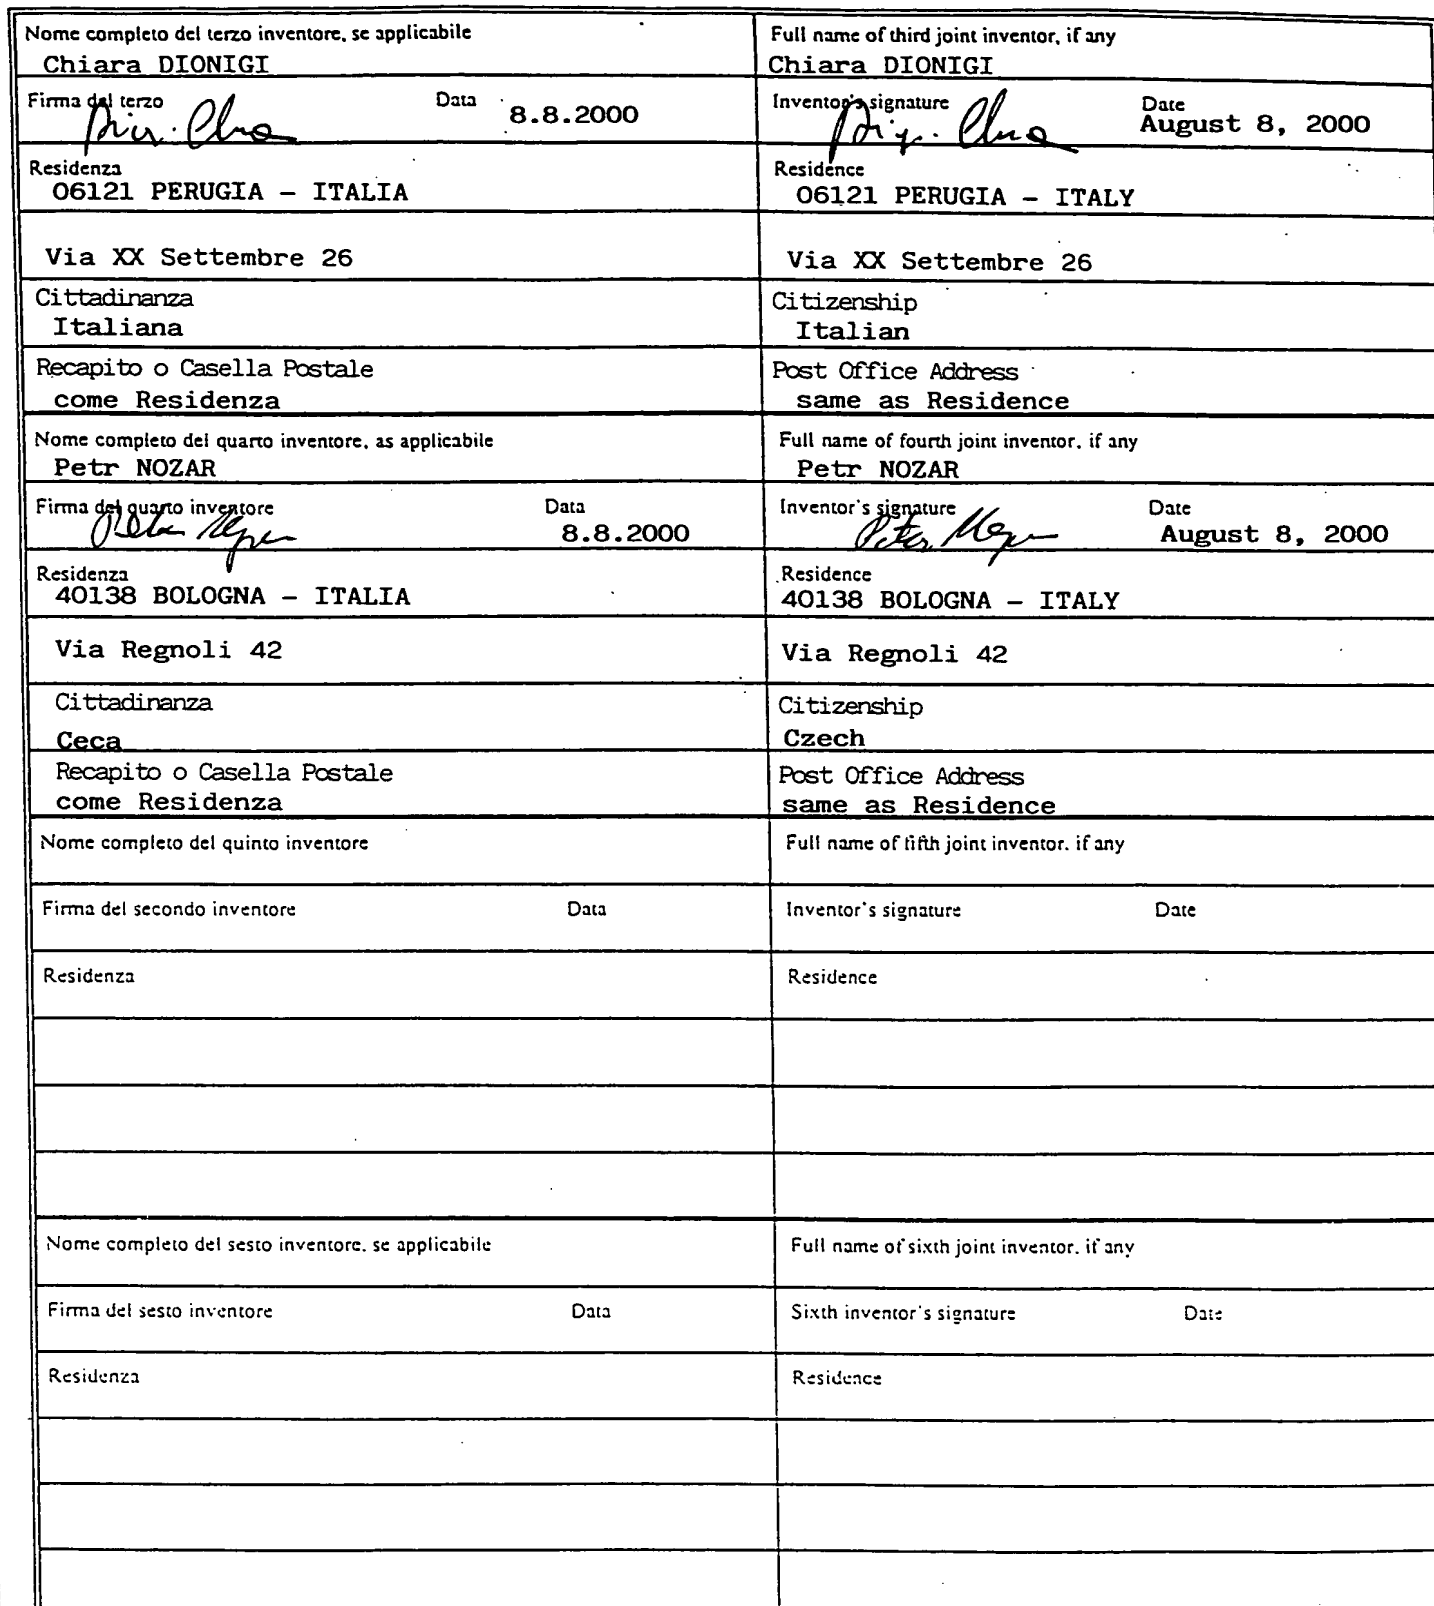 Nome completo del terzo inventore, se applicabile
Chiara DIONIGI
Full name of third joint inventor, if any
Chiara DIONIGI
Firma del terzo Data
8.8.2000
Inventor's signature Date
August 8, 2000
Residenza
06121 PERUGIA - ITALIA
Residence
06121 PERUGIA - ITALY
Via XX Settembre 26
Via XX Settembre 26
Cittadinanza
Italiana
Citizenship
Italian
Recapito o Casella Postale
come Residenza
Post Office Address
same as Residence
Nome completo del quarto inventore, as applicabile
Petr NOZAR
Full name of fourth joint inventor, if any
Petr NOZAR
Firma del quarto inventore Data
8.8.2000
Inventor's signature Date
August 8, 2000
Residenza
40138 BOLOGNA - ITALIA
Residence
40138 BOLOGNA - ITALY
Via Regnoli 42
Via Regnoli 42
Cittadinanza
Ceca
Citizenship
Czech
Recapito o Casella Postale
come Residenza
Post Office Address
same as Residence
Nome completo del quinto inventore
Full name of fifth joint inventor, if any
Firma del secondo inventore Data
Inventor's signature Date
Residenza
Residence
Nome completo del sesto inventore, se applicabile
Full name of sixth joint inventor, if any
Firma del sesto inventore Data
Sixth inventor's signature Date
Residenza
Residence